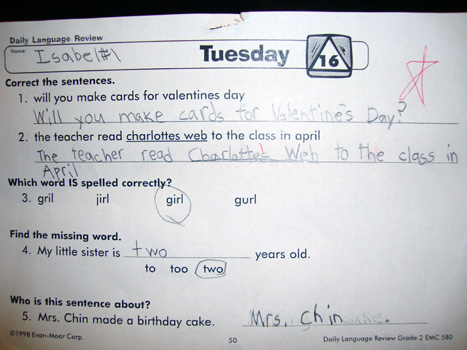 Daily Language Review
Name: Isabel #1
Tuesday
16
Correct the sentences.
1. will you make cards for valentines day
Will you make cards for Valentine's Day?
2. the teacher read charlottes web to the class in april
The teacher read Charlotte's Web to the class in
April
Which word IS spelled correctly?
3. gril jirl girl gurl
Find the missing word.
4. My little sister is two years old.
to too two
Who is this sentence about?
5. Mrs. Chin made a birthday cake. Mrs. Chin
©1998 Evan-Moor Corp. 50 Daily Language Review Grade 2 EMC 580